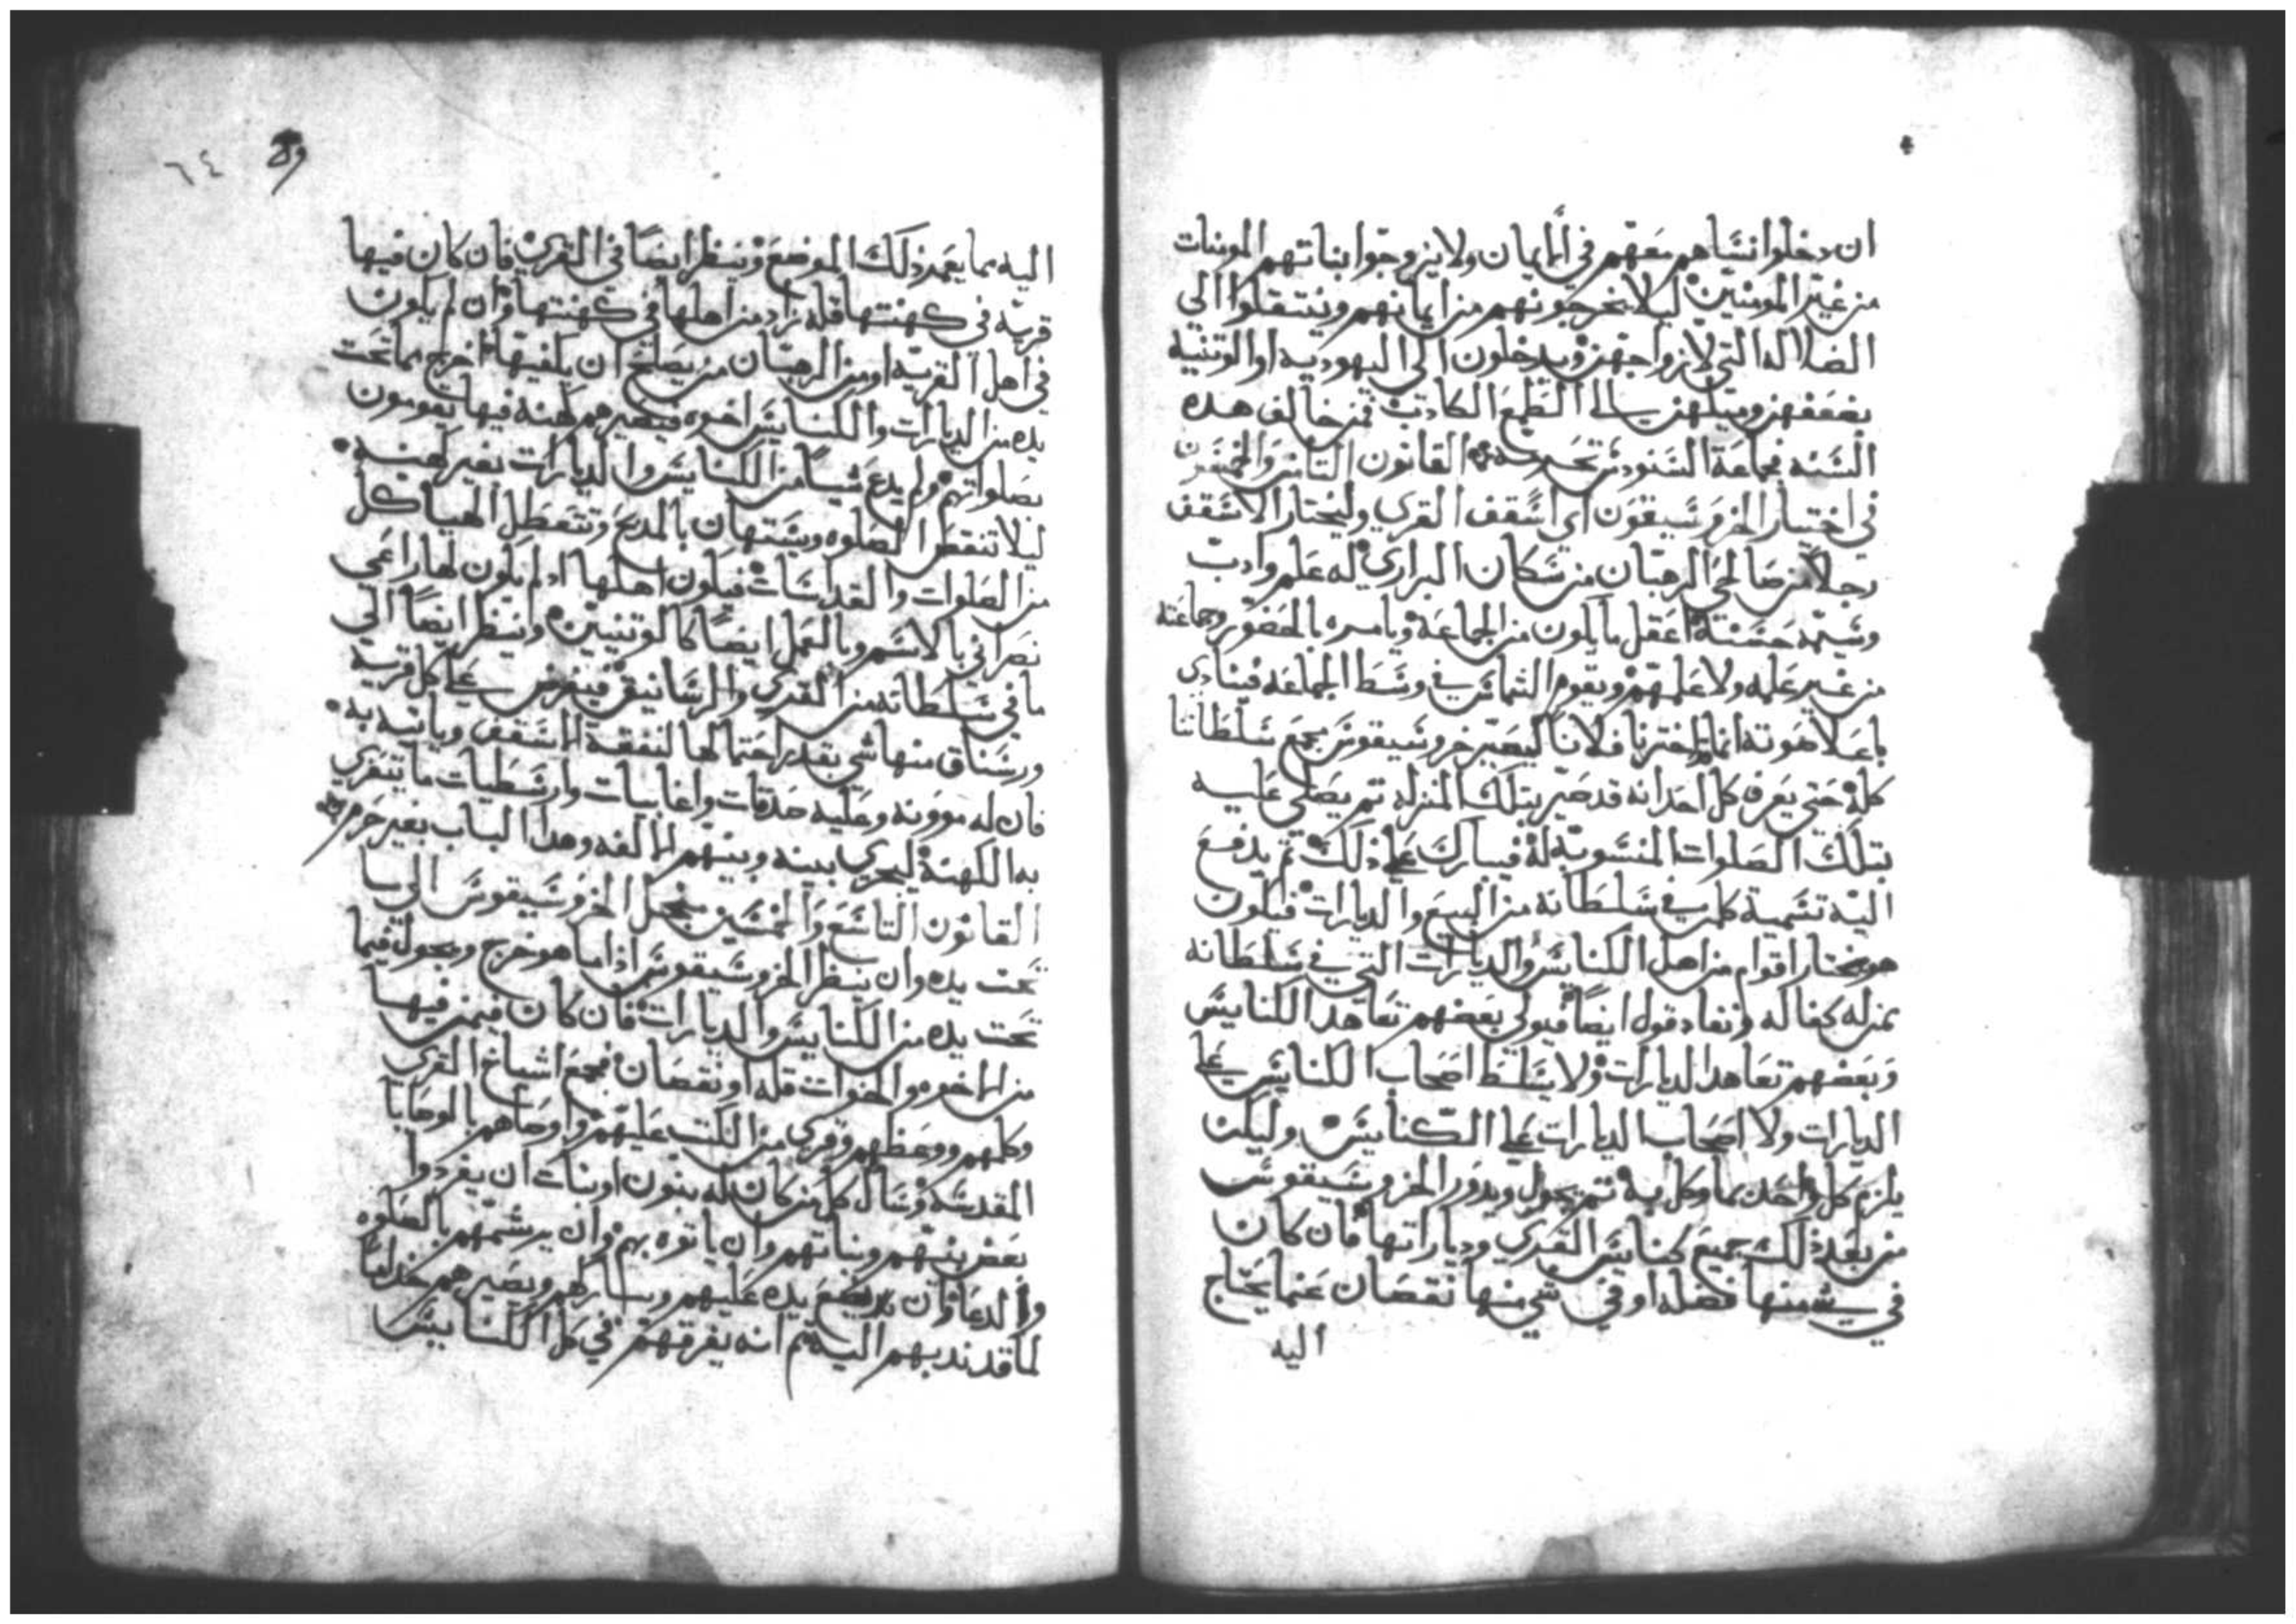 ان دخلوا نساهم معهم في الايمان ولا يزوجوا بناتهم المومنات
من غير المومنين ليلا يخرجونهم من ايمانهم وينتقلوا الى
الضلاله التي لازواجهن ويدخلون الي اليهوديه او الوتنيه
بضعفهن وميلهن الي الطمع الكادب فمن خالف هده
السنه فجماعة السنودس تحرمه القانون التامن والخمسون
في اختيار الخروسيقوس اي اسقف القري وليختار الاسقف
رجلا من صالحي الرهبان من سكان البراري له علم وادب
وسيره حسنة اعقل ما يكون من الجماعة ويامره بالحضور وجماعته
من غير علمه ولا علمهم ويقوم الشماس في وسط الجماعه فينادي
باعلا صوته انما اخترنا فلانا ليصير خروسيقوس بجميع سلطاننا
كله حتي يعرف كل احد انه قد صير بتلك المنزله تم يصلي عليه
بتلك الصلوات المنسوبة له فيبارك علي ذلك تم يدفع
اليه تسمية كلمن في سلطانه من البيع والديارات فيكون
هو يختار اقوام من اهل الكنايس والديارات التي في سلطانه
بمنزله كفاله ونفاد قول ايضا فيولي بعضهم تعاهد الكنايس
وبعضهم تعاهد الديارات ولا يسلط اصحاب الكنايس علي
الديارات ولا اصحاب الديارات علي الكنايس وليكن
يلزم كل واحد بما وكل به تم يجول ويدور الخروسيقوس
من بعد ذلك جميع كنايس القري ودياراتها فان كان
في شي منها فضله او في شي منها نقصان عنما يحتاج
اليه
٦٤
اليه مما يعمر ذلك الموضع وينظر ايضا في القري فان كان فيها
قريه في كهنتها قله زاد من اهلها في كهنتها وان لم يكون
في اهل القريه او من الرهبان من يصلح ان يلفيها اخرج مما تحت
يده من الديارات والكنايس اخوه فيصيرهم كهنه فيها يقومون
بصلواتهم ولم يدع شيا من الكنايس والديارات بغير كهنه
ليلا تنقطع الصلوه ويستهان بالمدبح وتتعطل الهياكل
من الصلوات والقداسات فيكون اهلها اد لم يكون لها راعي
نصراني بالاسم وبالعمل ايضا كالوتنيين وينظر ايضا الي
ما في سلطانه من القري والرساتيق فيفرض علي كل قريه
ورستاق منها شي بقدر احتمالها لنفقة الاسقف وياتيه به
فان له موونه وعليه صدقات واغابيات وارسطيات ما تتقري
به الكهنة ليجري بينه وبينهم الالفه وهدا الباب بغير حرم
القانون التاسع والخمسين ميجل الخروسيقوس الي سا
تحت يده وان ينظر الخروسيقوس اذا ما هو خرج ويجول فيما
تحت يده من الكنايس والديارات فان كان فيمن فيها
من الاخوه والاخوات قله او نقصان فجمع اشياخ القري
وكلمهم ووعظهم وقري من الكتب عليهم واوصاهم بالوصايا
المقدسة وسال كل من كان له بنون او بنات ان يفردوا
بعض بنيهم وبناتهم وان ياتوه بهم وان يرسمهم بالصلوه
والدعا وان يضع يده عليهم ويباركهم ويصيرهم خداما
لما قد ندبهم اليه تم انه يفرقهم في كل الكنايس